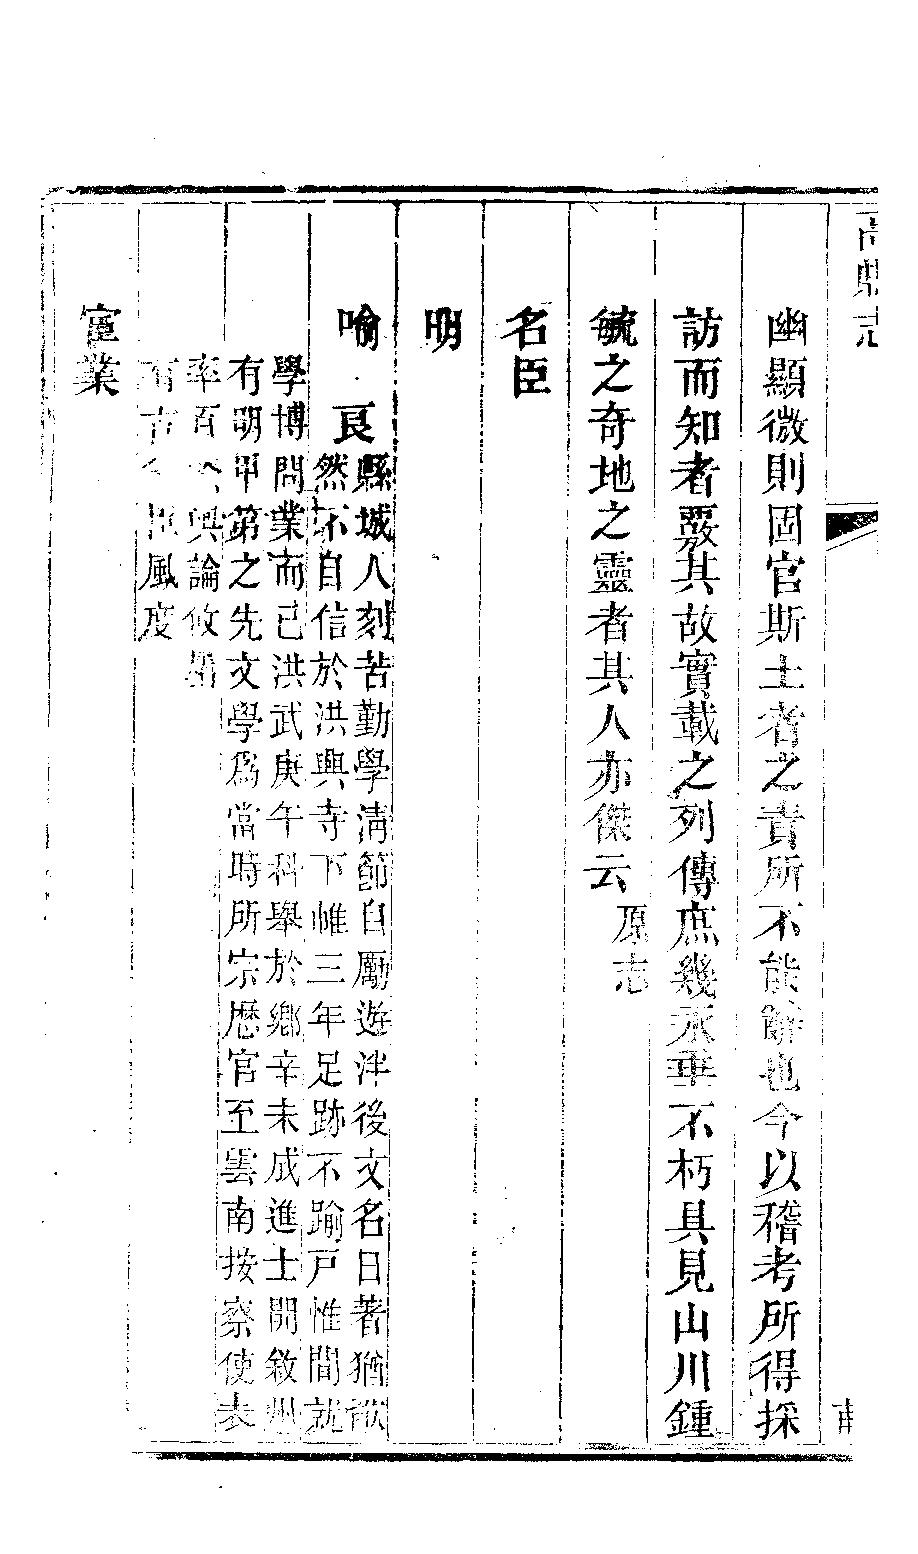 高縣志
幽顯微則固官斯土者之責所不能辭也今以稽考所得採
訪而知者覈其故實載之列傳庶幾永垂不朽具見山川鍾
毓之奇地之靈者其人亦傑云
原志
名臣
明
喻良
縣城人刻苦勤學清節自勵遊泮後文名日著猶歉
然不自信於洪興寺下帷三年足跡不踰戶惟間就
學博問業而已洪武庚午科舉於鄉辛未成進士開敘州
有明甲第之先文學為當時所宗歷官至雲南按察使表
率百 輿論攸
有古 臣風度
宦業